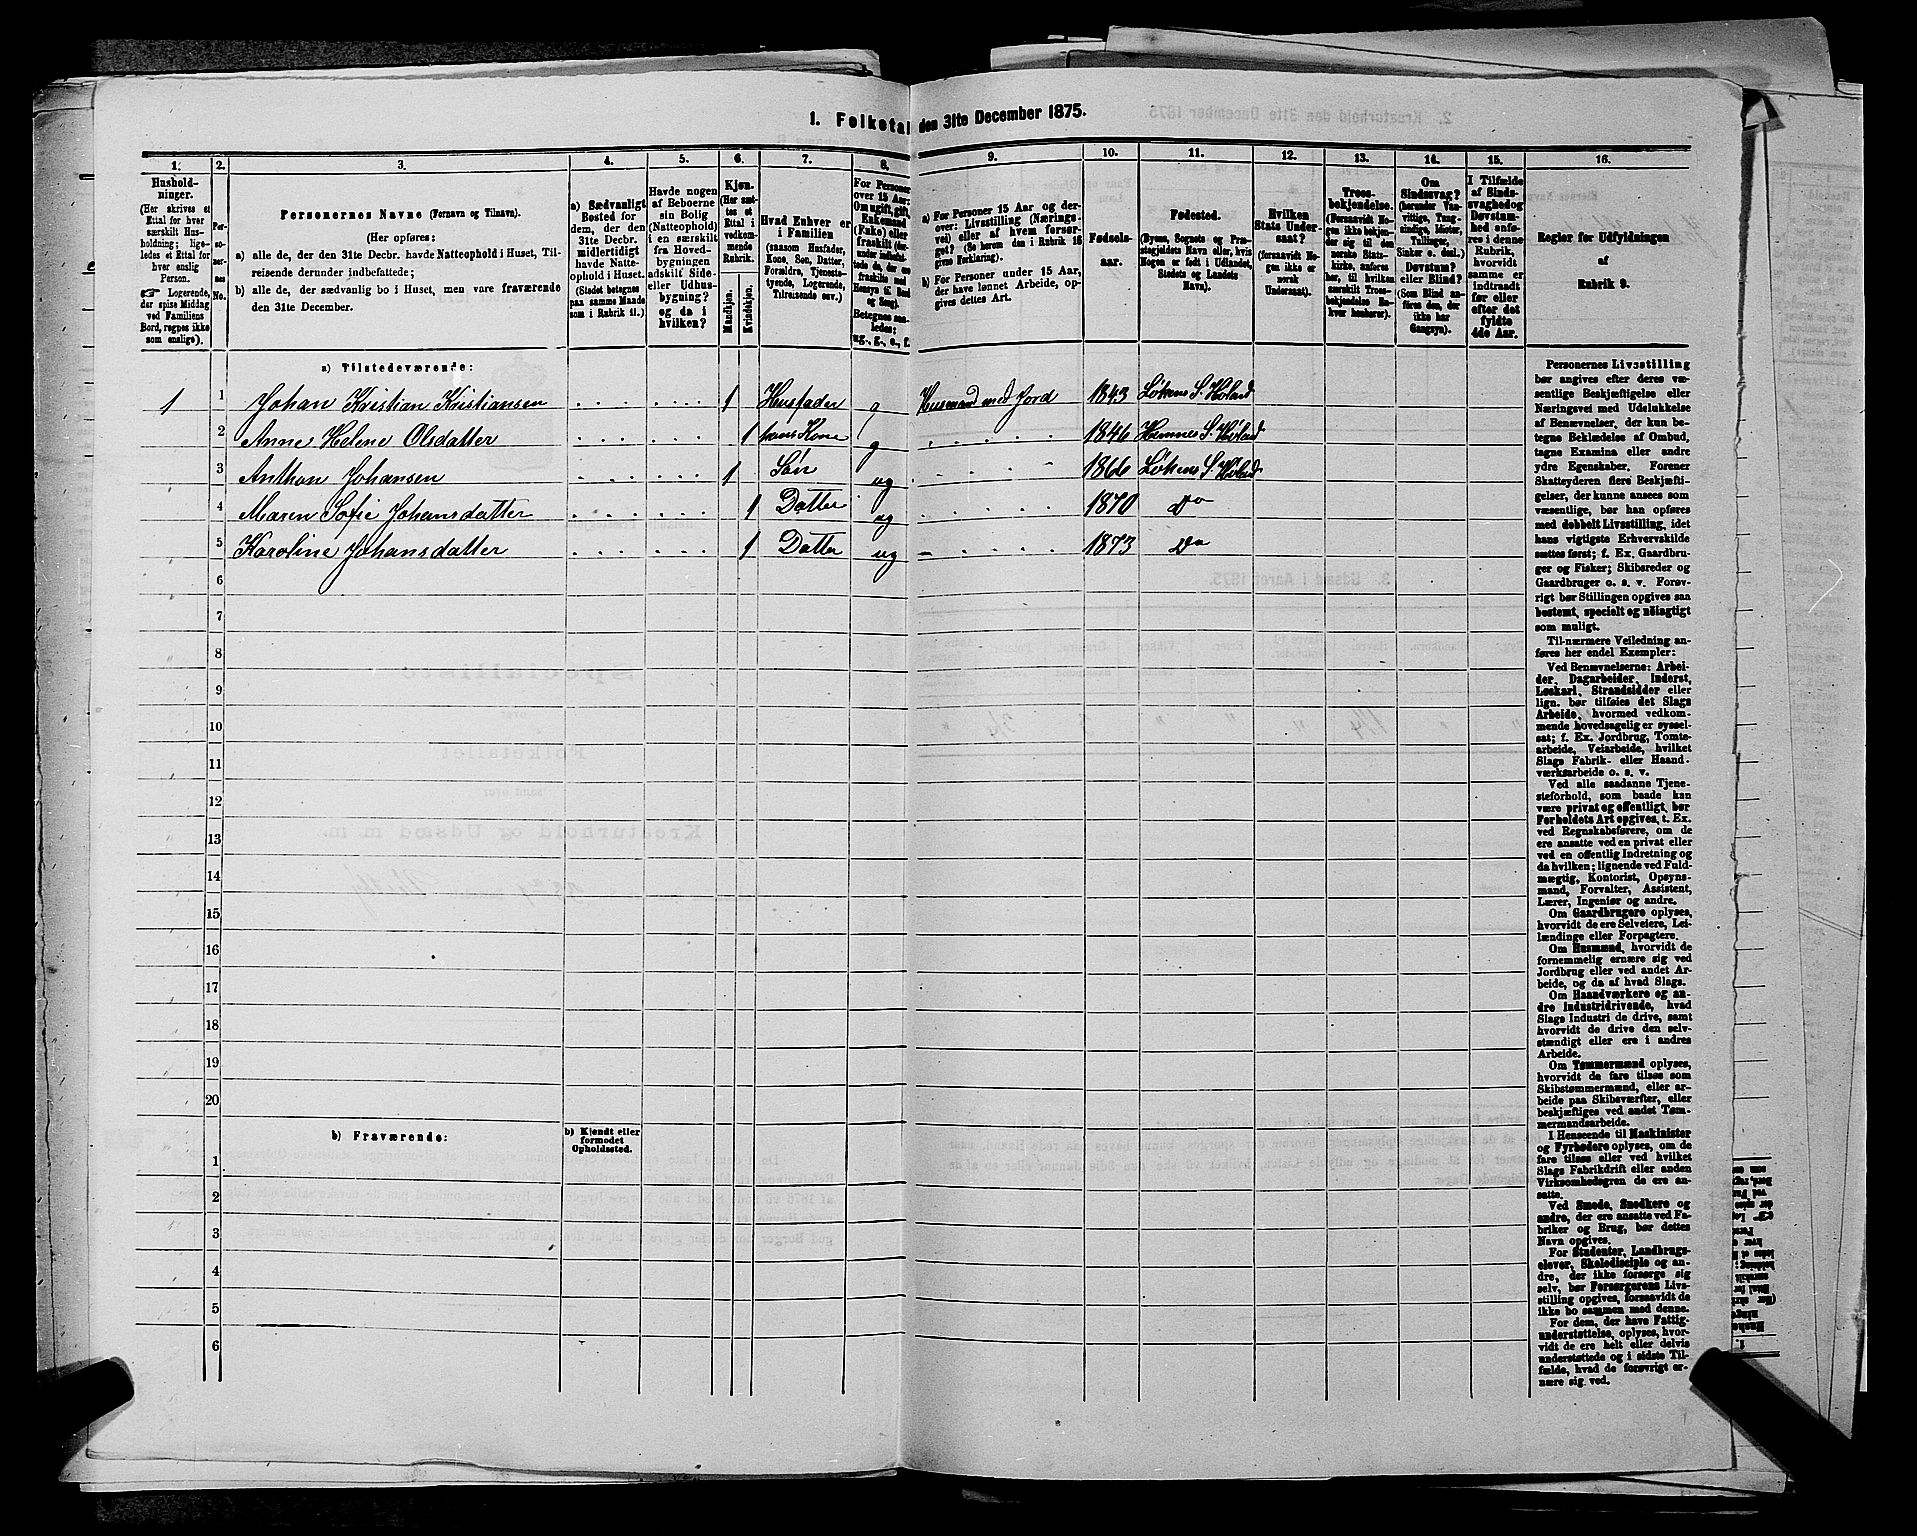 1. Folketal den 31te December 1875.
1. 2. 3. 4. 5. 6. 7. 8. 9. 10. 11. 12. 13. 14. 15. 16.
Hushold-
ninger.
(Her skrives et
Ettal for hver
særskilt Hus-
holdning; lige-
ledes et Ettal for
hver enslig
Person.
Logerende,
der spise Middag
ved Familiens
Bord, regnes ikke
som enslige).
Per-
so-
ner-
nes
No.
Personernes Navne (Fornavn og Tilnavn).
(Her opføres:
a) alle de, der den 31te Decbr. havde Natteophold i Huset, Til-
reisende derunder indbefattede;
b) alle de, der sædvanlig bo i Huset, men vare fraværende
den 31te December.
a) Sædvanligt
Bosted for
dem, der den
31te Decbr.
midlertidigt
havde Natte-
ophold i Huset.
(Stedet betegnes
paa samme Maade
som i Rubrik 11.)
Havde nogen
af Beboerne
sin Bolig
(Natteophold)
i en særskilt
fra Hoved-
bygningen
adskilt Side-
eller Udhus-
bygning?
og da i
hvilken?
Kjøn.
(Her sæt-
tes et
Ettal i
vedkom-
mende
Rubrik.
Mandkjøn.
Kvindekjøn.
Hvad Enhver er
i Familien
(saasom Husfader,
Kone, Søn, Datter,
Forældre, Tjeneste-
tyende, Logerende,
Tilreisende osv.)
For Personer
over 15 Aar:
Om ugift, gift,
Enkemand
(Enke) eller
fraskilt
Betegnes saa-
ledes:
ug., g., e., f.
a) For Personer 15 Aar og der-
over: Livsstilling (Nærings-
vei) eller af hvem forsør-
get? (Se herom den i Rubrik 16
givne Forklaring).
b) For Personer under 15 Aar,
der have lønnet Arbeide, op-
gives dettes Art.
Fødsels-
aar.
Fødested.
(Byens, Sognets og Præ-
stegjeldets Navn eller, hvis
Nogen er født i Udlandet,
Stedets og Landets
Navn).
Hvilken
Stats Under-
saat?
(forsaavidt No-
gen ikke er
norsk
Undersaat).
Troes-
bekjendelse.
(Forsaavidt No-
gen ikke bekjen-
der sig til den
norske Stats-
kirke, anføres
her, til hvilken
særskilt Troes-
bekjendelse En-
hver henhører).
Om
Sindssvag?
(herunder Van-
vittige, Tung-
sindige, Idioter,
Tullinger,
Sinker o. desl.)
Døvstum?
eller Blind?
(Som Blind an-
føres den, der
ikke har
Gangsyn).
I Tilfælde
af Sinds-
svaghed og
Døvstum-
hed anfø-
res i denne
Rubrik,
hvorvidt
samme er
indtraadt
før eller
efter det
fyldte
4de Aar.
Regler for Udfyldningen
af
Rubrik 9.
a) Tilstedeværende:
1 1 Johan Kristian Kristiansen 1 Husfader g Husmand med Jord 1843 Løkens S. Høland
2 Anne Helene Olsdatter 1 hans Kone g 1846 Hemnes S. Høland
3 Anthon Johansen 1 Søn ug 1866 Løkens S. Høland
4 Maren Sofie Johansdatter 1 Datter ug 1870 Do
5 Karoline Johansdatter 1 Datter ug 1873 Do
6
7
8
9
10
11
12
13
14
15
16
17
18
19
20
b) Fraværende:
b) Kjendt eller
formodet
Opholdssted.
1
2
3
4
5
6
Personernes Livsstilling
bør angives efter deres væ-
sentlige Beskjæftigelse eller
Næringsvei med Udelukkelse
af Benævnelser, der kun be-
tegne Beklædelse af Ombud,
tagne Examina eller andre
ydre Egenskaber. Forener
Skatteyderen flere Beskjæfti-
gelser, der kunne ansees som
væsentlige, bør han opføres
med dobbelt Livsstilling, idet
hans vigtigste Erhvervskilde
sættes først; f. Ex. Gaardbru-
ger og Fisker; Skibsreder og
Gaardbruger o. s. v. Forøv-
rigt bør Stillingen opgives saa
bestemt, specielt og nøiagtigt
som muligt.
Til nærmere Veiledning an-
føres her endel Exempler:
Ved Benævnelserne: Arbei-
der, Dagarbeider, Inderst,
Løskarl, Strandsidder eller
lign. bør tilføies det Slags
Arbeide, hvormed vedkom-
mende hovedsagelig er syssel-
sat; f. Ex. Jordbrug, Tomte-
arbeide, Veiarbeide, hvilket
Slags Fabrik- eller Haand-
værksarbeide o. s. v.
Ved alle saadanne Tjene-
steforhold, som baade kan
være privat og offentligt, bør
Forholdets Art opgives, t. Ex.
ved Regnskabsførere, om de
ere ansatte ved en privat eller
ved en offentlig Indretning og
da hvilken; lignende ved Fuld-
mægtig, Kontorist, Opsyns-
mand, Forvalter, Assistent,
Lærer, Ingeniør og andre.
Om Gaardbrugere oplyses,
hvorvidt de ere Selveiere, Lei-
lændinge eller Forpagtere.
Om Husmænd, hvorvidt de
fornemmelig ernære sig ved
Jordbrug eller ved andet Ar-
beide, og da af hvad Slags.
Om Haandværkere og an-
dre Industridrivende, hvad
Slags Industri de drive, samt
hvorvidt de drive den selv-
stændigt eller ere i andres
Arbeide.
Om Tømmermænd oplyses,
hvorvidt de fare tilsøs som
Skibstømmermænd, eller ar-
beide paa Skibsværfter, eller
beskjæftiges ved andet Tøm-
mermandsarbeide.
I Henseende til Maskinister
og Fyrbødere oplyses, om de
fare tilsøs eller ved hvilket
Slags Fabrikdrift eller anden
Virksomhedsgren de ere an-
satte.
Ved Smede, Snedkere og
andre, der ere ansatte ved Fa-
briker og Brug, bør dettes
Navn opgives.
For Studenter, Landbrugs-
elever, Skoledisciple og an-
dre, der ikke forsørge sig
selv, bør Forsørgerens Livs-
stilling opgives, forsaavidt de
ikke bo sammen med denne.
For dem, der have Fattig-
understøttelse, oplyses, hvor-
vidt de ere helt eller delvis
understøttede og i sidste Til-
fælde, hvad de forøvrigt er-
nære sig ved.